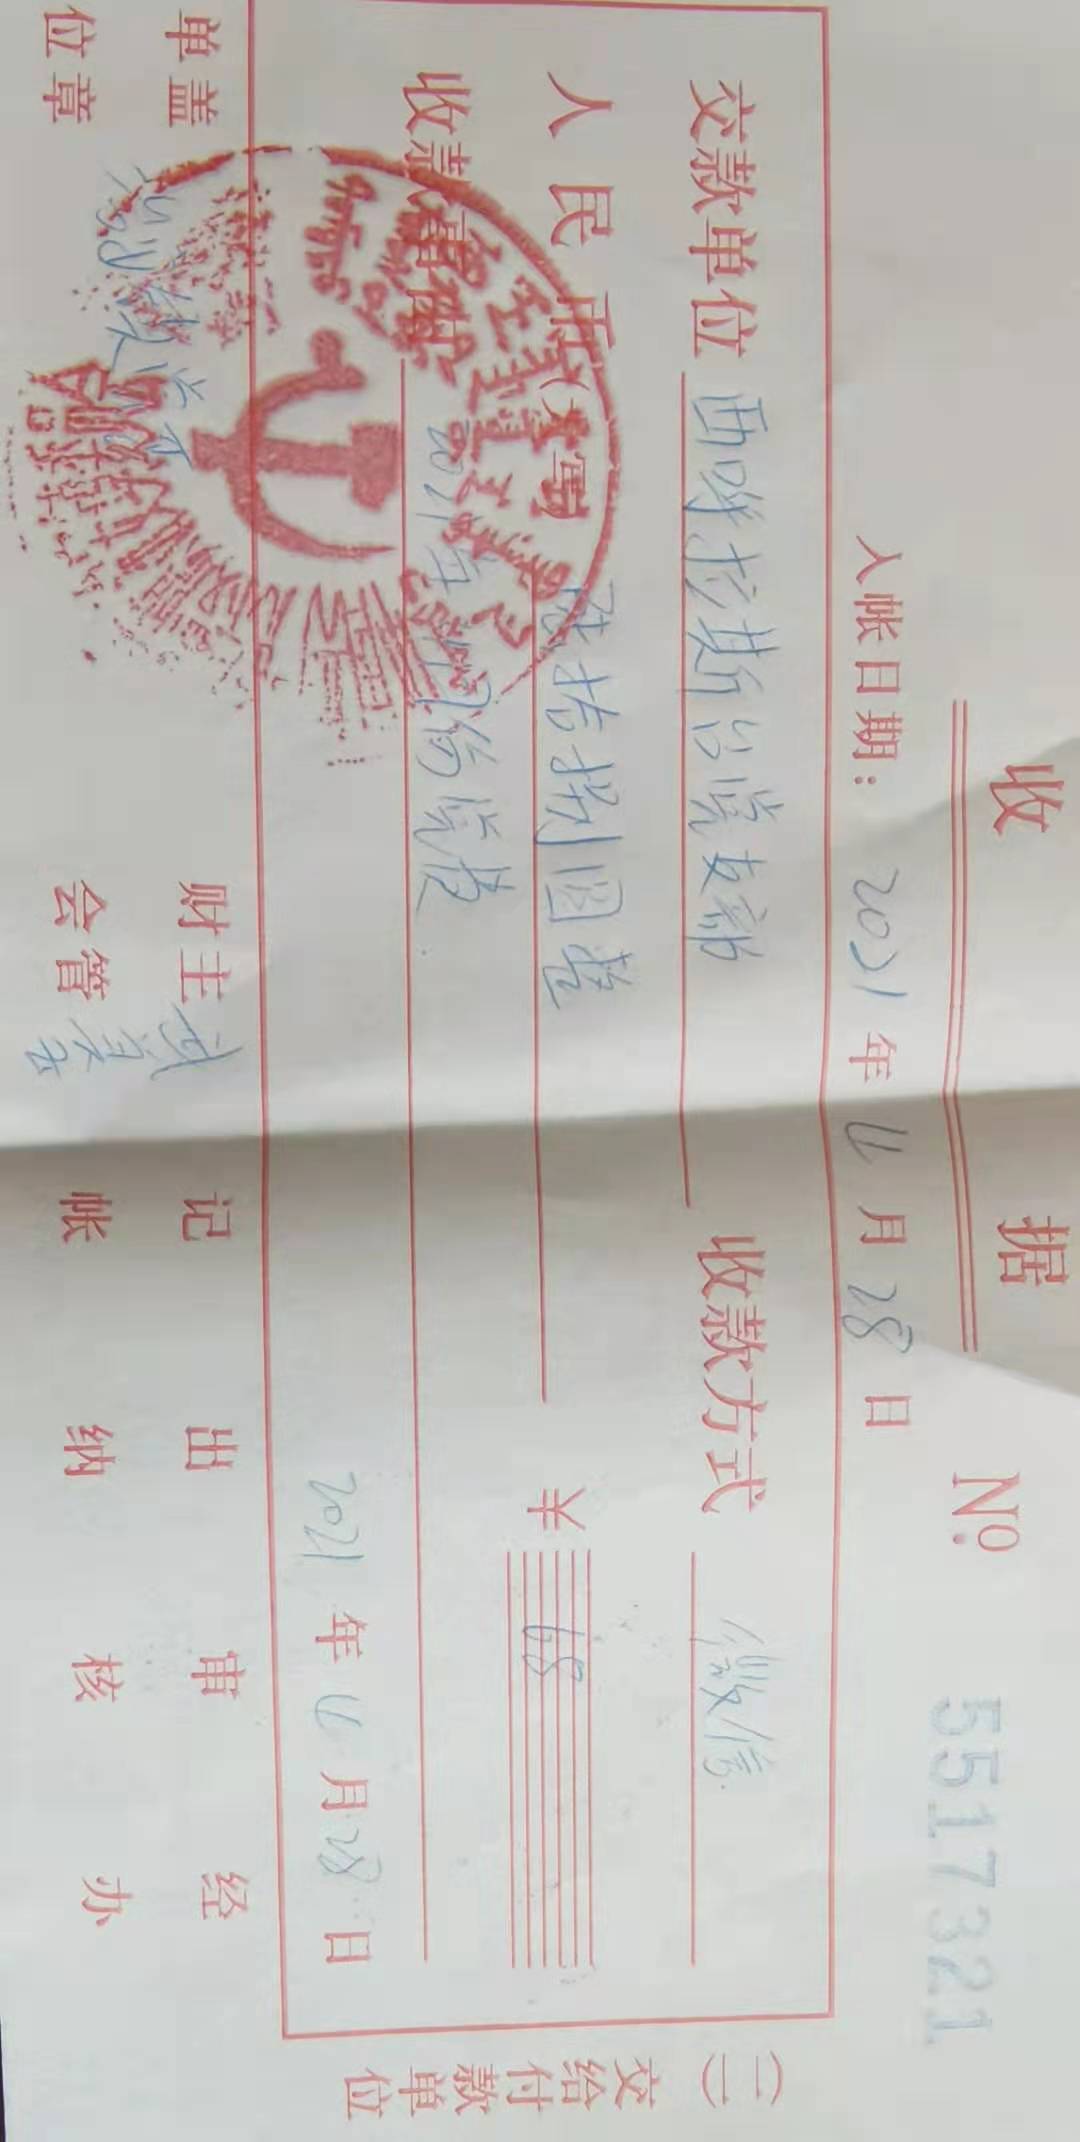 收 据
№ 5517321
入帐日期: 2021 年 4 月 28 日
交款单位 西哈拉斯台党支部 收款方式 微信
人民币(大写) 陆拾捌圆整 ¥ 68
收款事由 2021年4月份党费
2021 年 4 月 28 日
单位盖章 财会主管 记帐 出纳 审核 经办
(二)交给付款单位